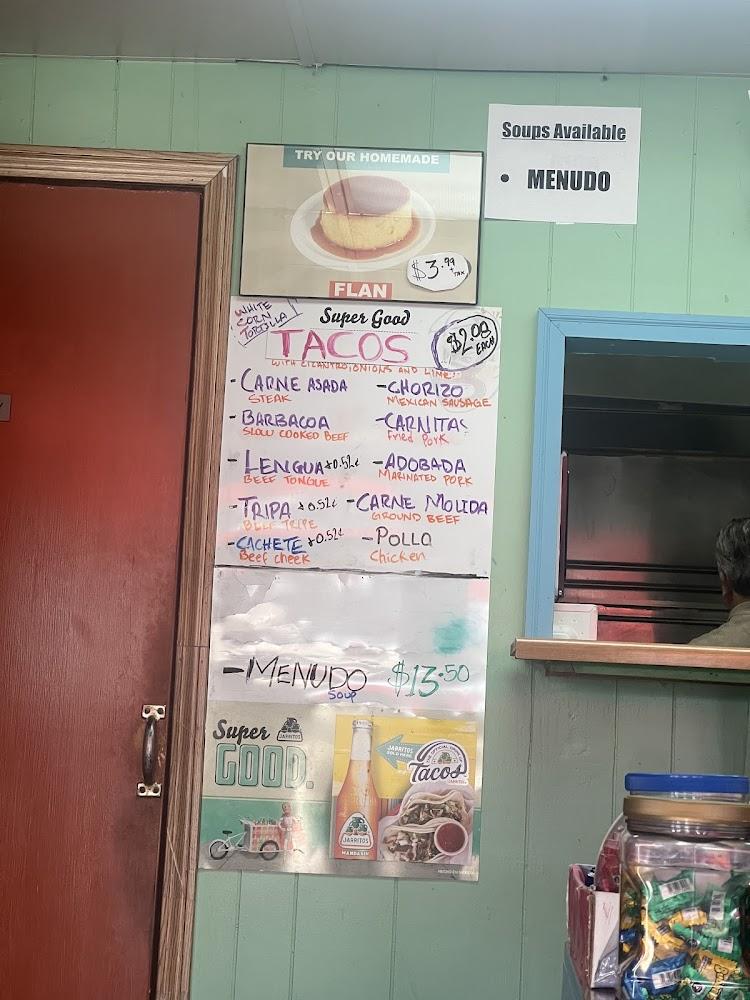 Soups Available
• MENUDO
TRY OUR HOMEMADE
$3.99
+ TAX
FLAN
WHITE
CORN
TORTILLA
Super Good
TACOS
EACH
WITH CILANTRO, ONIONS AND LIME!
- CARNE ASADA
STEAK
- BARBACOA
SLOW COOKED BEEF
- LENGUA +0.52¢
BEEF TONGUE
- TRIPA +0.52¢
BEEF TRIPE
- CACHETE +0.52¢
Beef cheek
- CHORIZO
MEXICAN SAUSAGE
- CARNITAS
Fried Pork
- ADOBADA
MARINATED PORK
- CARNE MOLIDA
GROUND BEEF
- POLLO
Chicken
- MENUDO $13.50
Soup
Super
JARRITOS
GOOD.
JARRITOS
SOLD HERE
Tacos
JARRITOS
MANDARIN
HECHO EN MEXICO